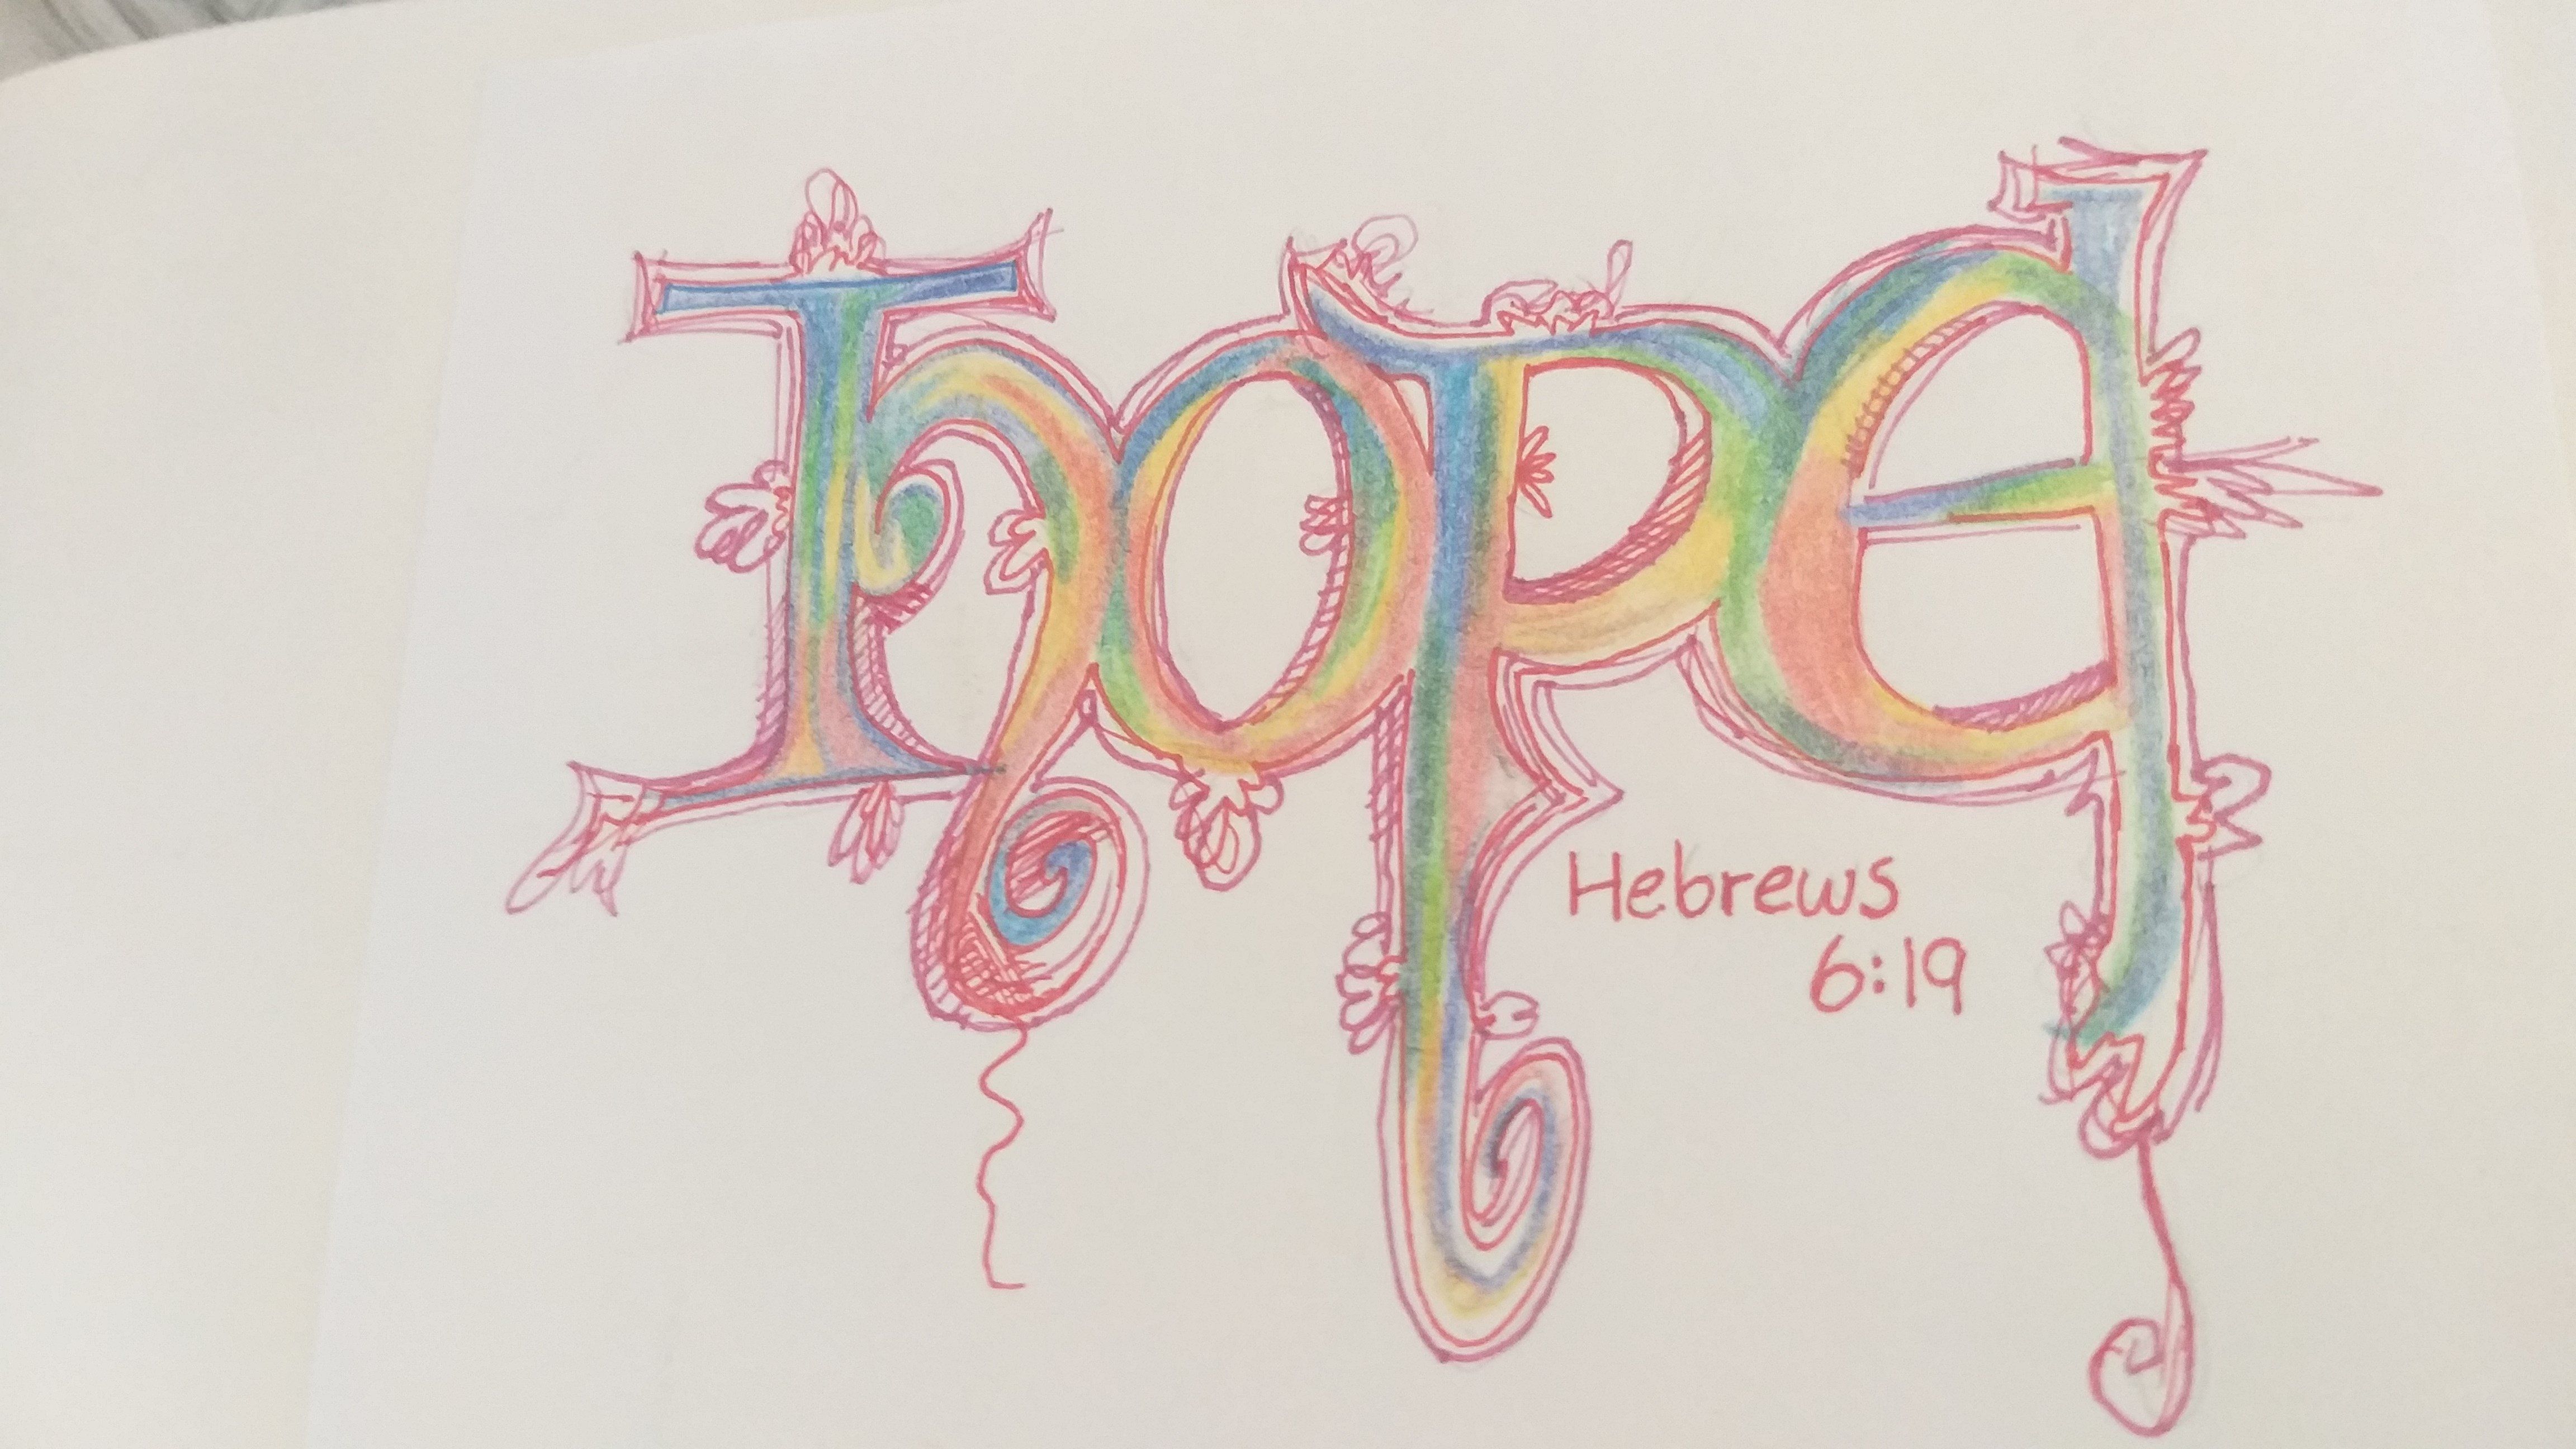 hope
Hebrews
6:19